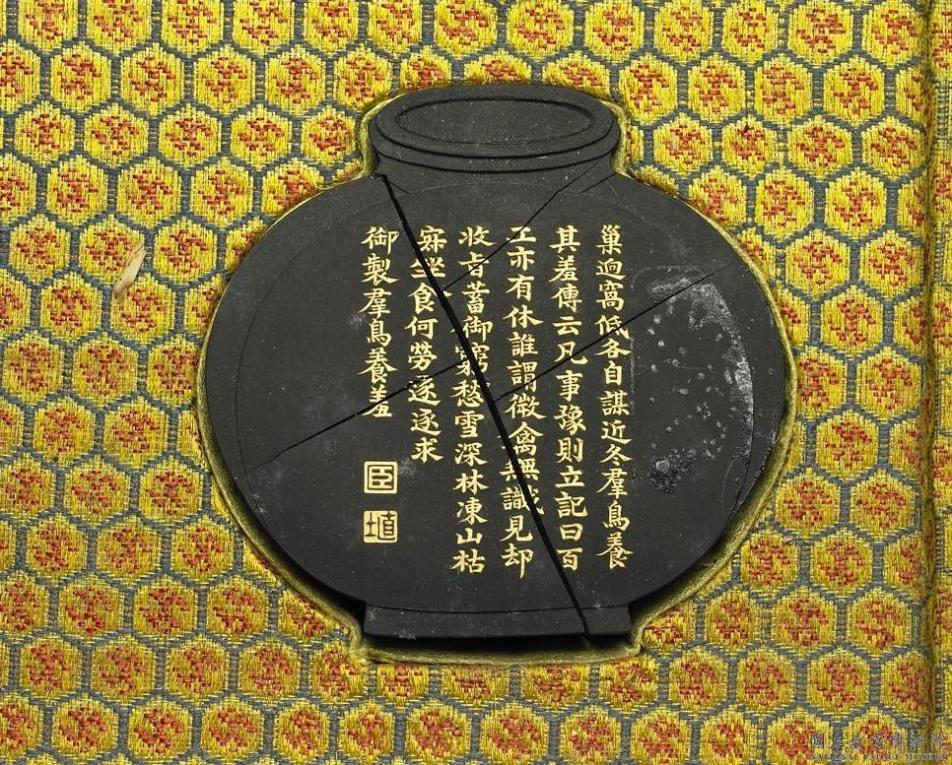 巢逈窩低各自謀近冬羣鳥養
其羞傳云凡事豫則立記曰百
工亦有休誰謂微禽無識見却
收旨蓄御窮愁雪深林凍山枯
寂坐食何勞逐逐求
御製羣鳥養羞
臣
埴
國立故宮博物院
NATIONAL PALACE MUSEUM